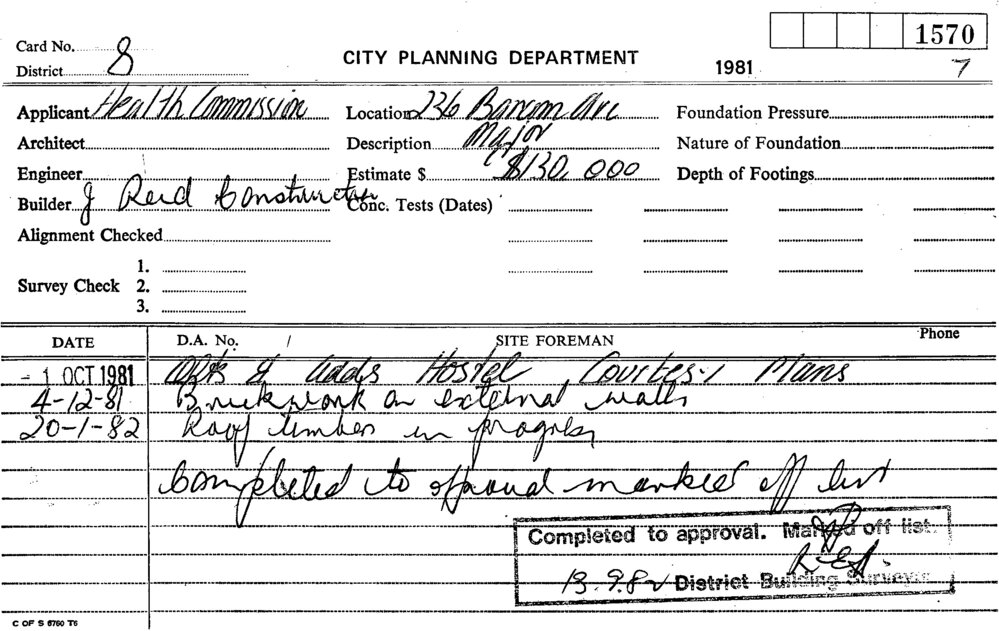 1570
Card No. 8
District
CITY PLANNING DEPARTMENT
1981 7
Applicant Health Commission Location 236 Foundation Pressure
Architect Description Major Nature of Foundation
Engineer Estimate $ $130,000 Depth of Footings
Builder J Reid Construction Conc. Tests (Dates)
Alignment Checked
1.
Survey Check 2.
3.
DATE D.A. No. / SITE FOREMAN Phone
- 1 OCT 1981 Alts & adds Hostel Courtesy Plans
4-12-81 Brickwork on external walls
20-1-82 Roof timber in progress
Completed to approval marked off list
Completed to approval. Marked off list.
13.9.82 District Building Surveyor
C OF S 6760 T6